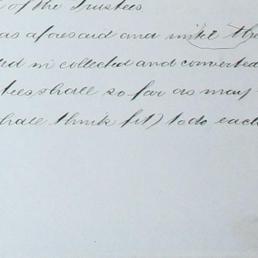 of the Trustees
as aforesaid and until the
ed in collected and converted
tees shall so far as may
shall think fit) to do each